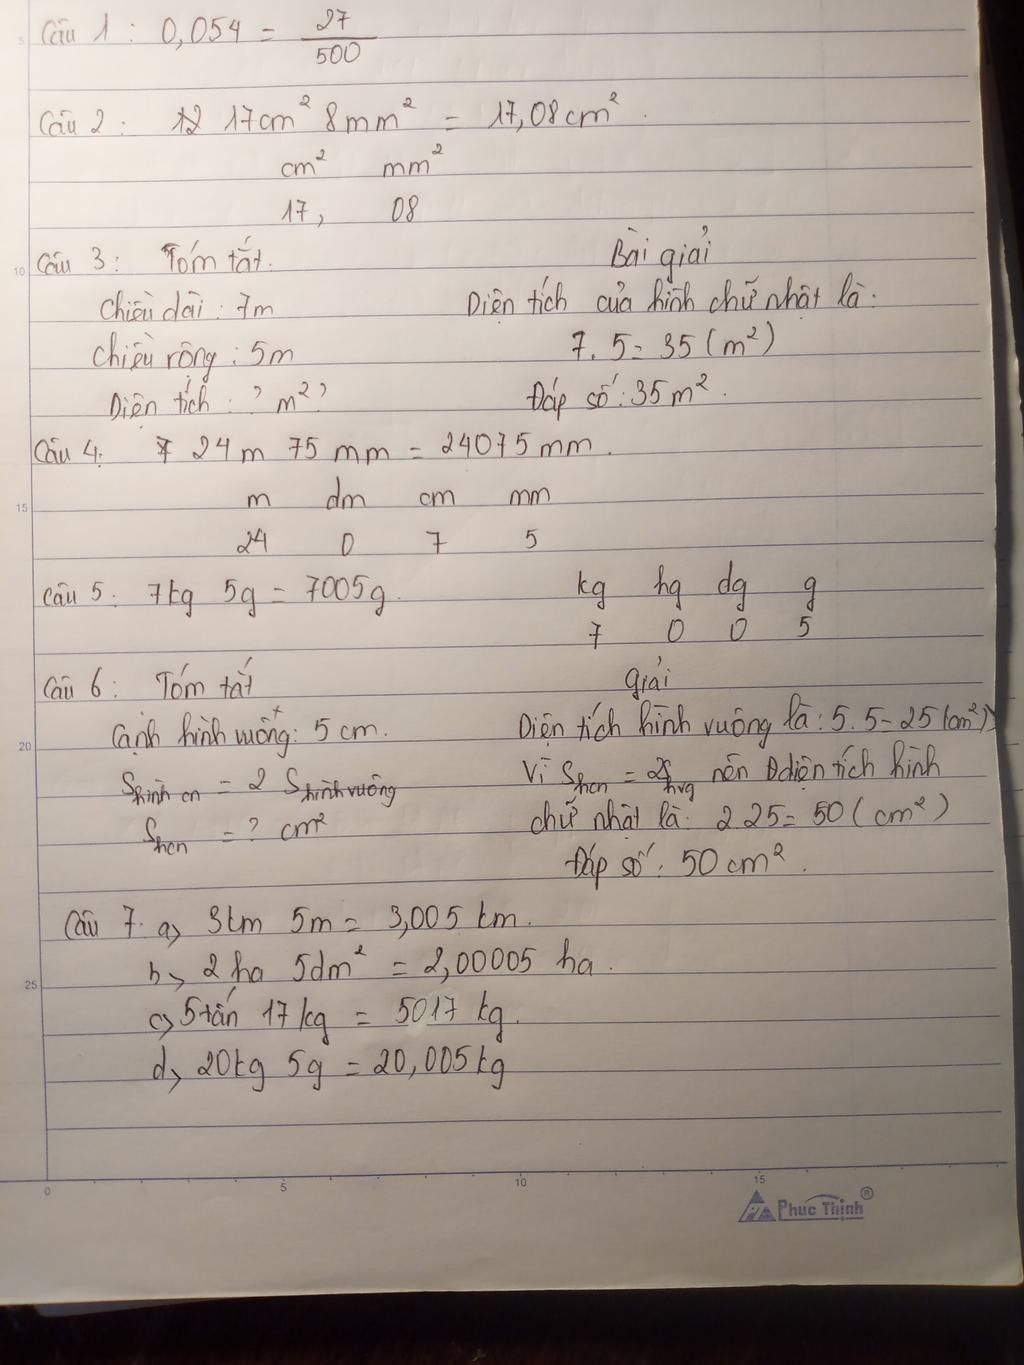 Câu 1 : 0,054 = 27/500
Câu 2 : 12 17cm² 8mm² = 17,08cm².
cm² mm²
17, 08
Câu 3 : Tóm tắt. Bài giải
Chiều dài : 7m Diện tích của hình chữ nhật là :
Chiều rộng : 5m 7. 5 = 35 (m²)
Diện tích : ? m² ? Đáp số : 35m².
Câu 4 : 7 24m 75mm = 24075mm.
m dm cm mm
24 0 7 5
Câu 5 : 7kg 5g = 7005g. kg hg dg g
7 0 0 5
Câu 6 : Tóm tắt Giải
Cạnh hình vuông : 5cm. Diện tích hình vuông là : 5. 5 = 25 (cm²)
Shình cn = 2 Shình vuông Vì Shcn = 2Shvg nên Diện tích hình
Shcn = ? cm² chữ nhật là : 2 25 = 50 (cm²)
Đáp số : 50cm².
Câu 7 : a, 3km 5m = 3,005 km.
b, 2 ha 5dm² = 2,00005 ha.
c, 5 tấn 17 kg = 5017 kg.
d, 20kg 5g = 20,005kg
5
10
15
20
25
0 5 10 15
Phuc Thinh ®